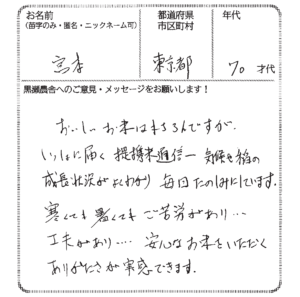 お名前
（苗字のみ・匿名・ニックネーム可）
都道府県
市区町村
年代
東京都
70 才代
黒瀬農舎へのご意見・メッセージをお願いします！
おいしいお米はもちろんですが、
いっしょに届く 提携米通信－気候や稲の
成長状況がよくわかり 毎回たのしみにしています。
寒くても 暑くても ご苦労があり…
工夫があり…. 安心なお米をいただく
ありがたさが実感できます。